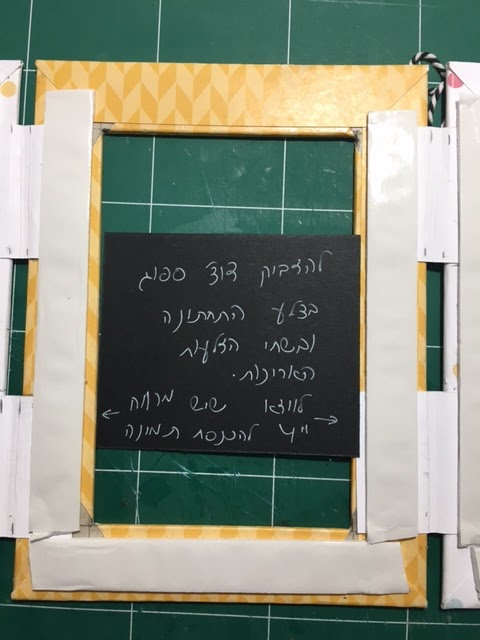 להדביק דו"צ ספוג
בצלע התחתונה
ובשתי הצלעות
הארוכות.
לוודא שיש מרווח
4" להכנסת תמונה